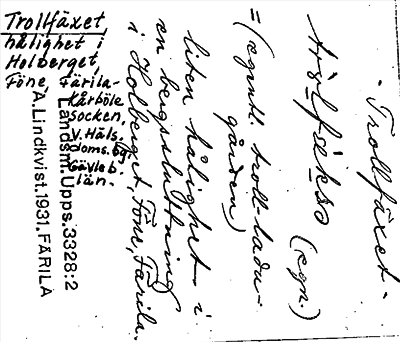 Trollfäxet,
hålighet i
Holberget,
Föne, Färila-
Kårböle
socken,
V. Häls.
doms. sg,
Gävleb.
län.
Landsm. Upps. 3328:2
A. Lindkvist. 1931. FÄRILA
Trollfäxet.
(egn.)
= (egentl. troll-ladu-
gården)
liten hålighet i
en bergssluttning
i Holberget, Föne, Färila.